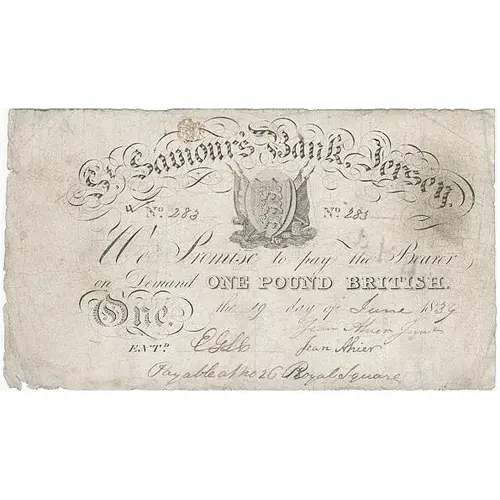 St. Saviour's Bank, Jersey.
No. 283 No. 283
We Promise to pay the Bearer
on Demand ONE POUND BRITISH.
the 19 day of June 1839
One.
Jean Ahier
ENTD.
Payable at No 26 Royal Square